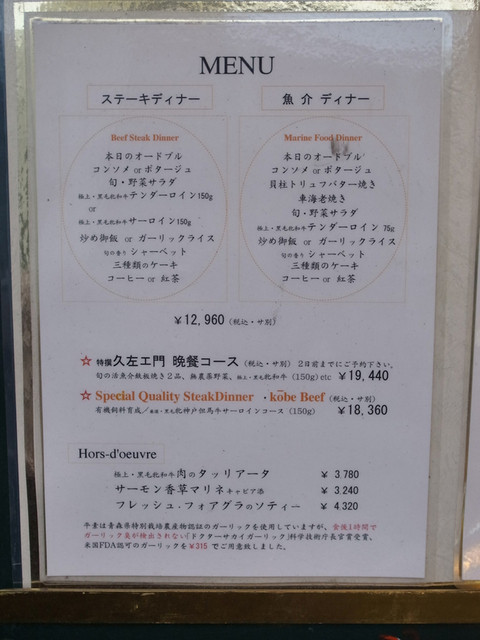 MENU
ステーキディナー
魚 介 ディナー
Beef Steak Dinner
本日のオードブル
コンソメ or ポタージュ
旬・野菜サラダ
極上・黒毛和牛テンダーロイン150g
or
極上・黒毛和牛サーロイン150g
炒め御飯 or ガーリックライス
旬の香り シャーベット
三種類のケーキ
コーヒー or 紅茶
Marine Food Dinner
本日のオードブル
コンソメ or ポタージュ
貝柱トリュフバター焼き
車海老焼き
旬・野菜サラダ
極上・黒毛和牛テンダーロイン 75g
炒め御飯 or ガーリックライス
旬の香り シャーベット
三種類のケーキ
コーヒー or 紅茶
¥12,960 (税込・サ別)
☆ 特撰久左エ門 晩餐コース (税込・サ別) 2日前までにご予約下さい。
旬の活魚介鉄板焼き2品、無農薬野菜、極上・黒毛和牛 (150g) etc ¥19,440
☆ Special Quality SteakDinner ・kobe Beef (税込・サ別)
有機飼料育成/ 黒毛神戸但馬牛サーロインコース (150g) ¥18,360
Hors-d'oeuvre
極上・黒毛和牛肉のタッリアータ ¥ 3.780
サーモン香草マリネ キャビア添 ¥ 3.240
フレッシュ.フォアグラのソティー ¥ 4.320
平素は青森県特別栽培農産物認証のガーリックを使用していますが、食後1時間で
ガーリック臭が検出されない(ドクターサカイガーリック)科学技術庁長官賞受賞、
米国FDA認可のガーリックを¥315 でご用意致しました。